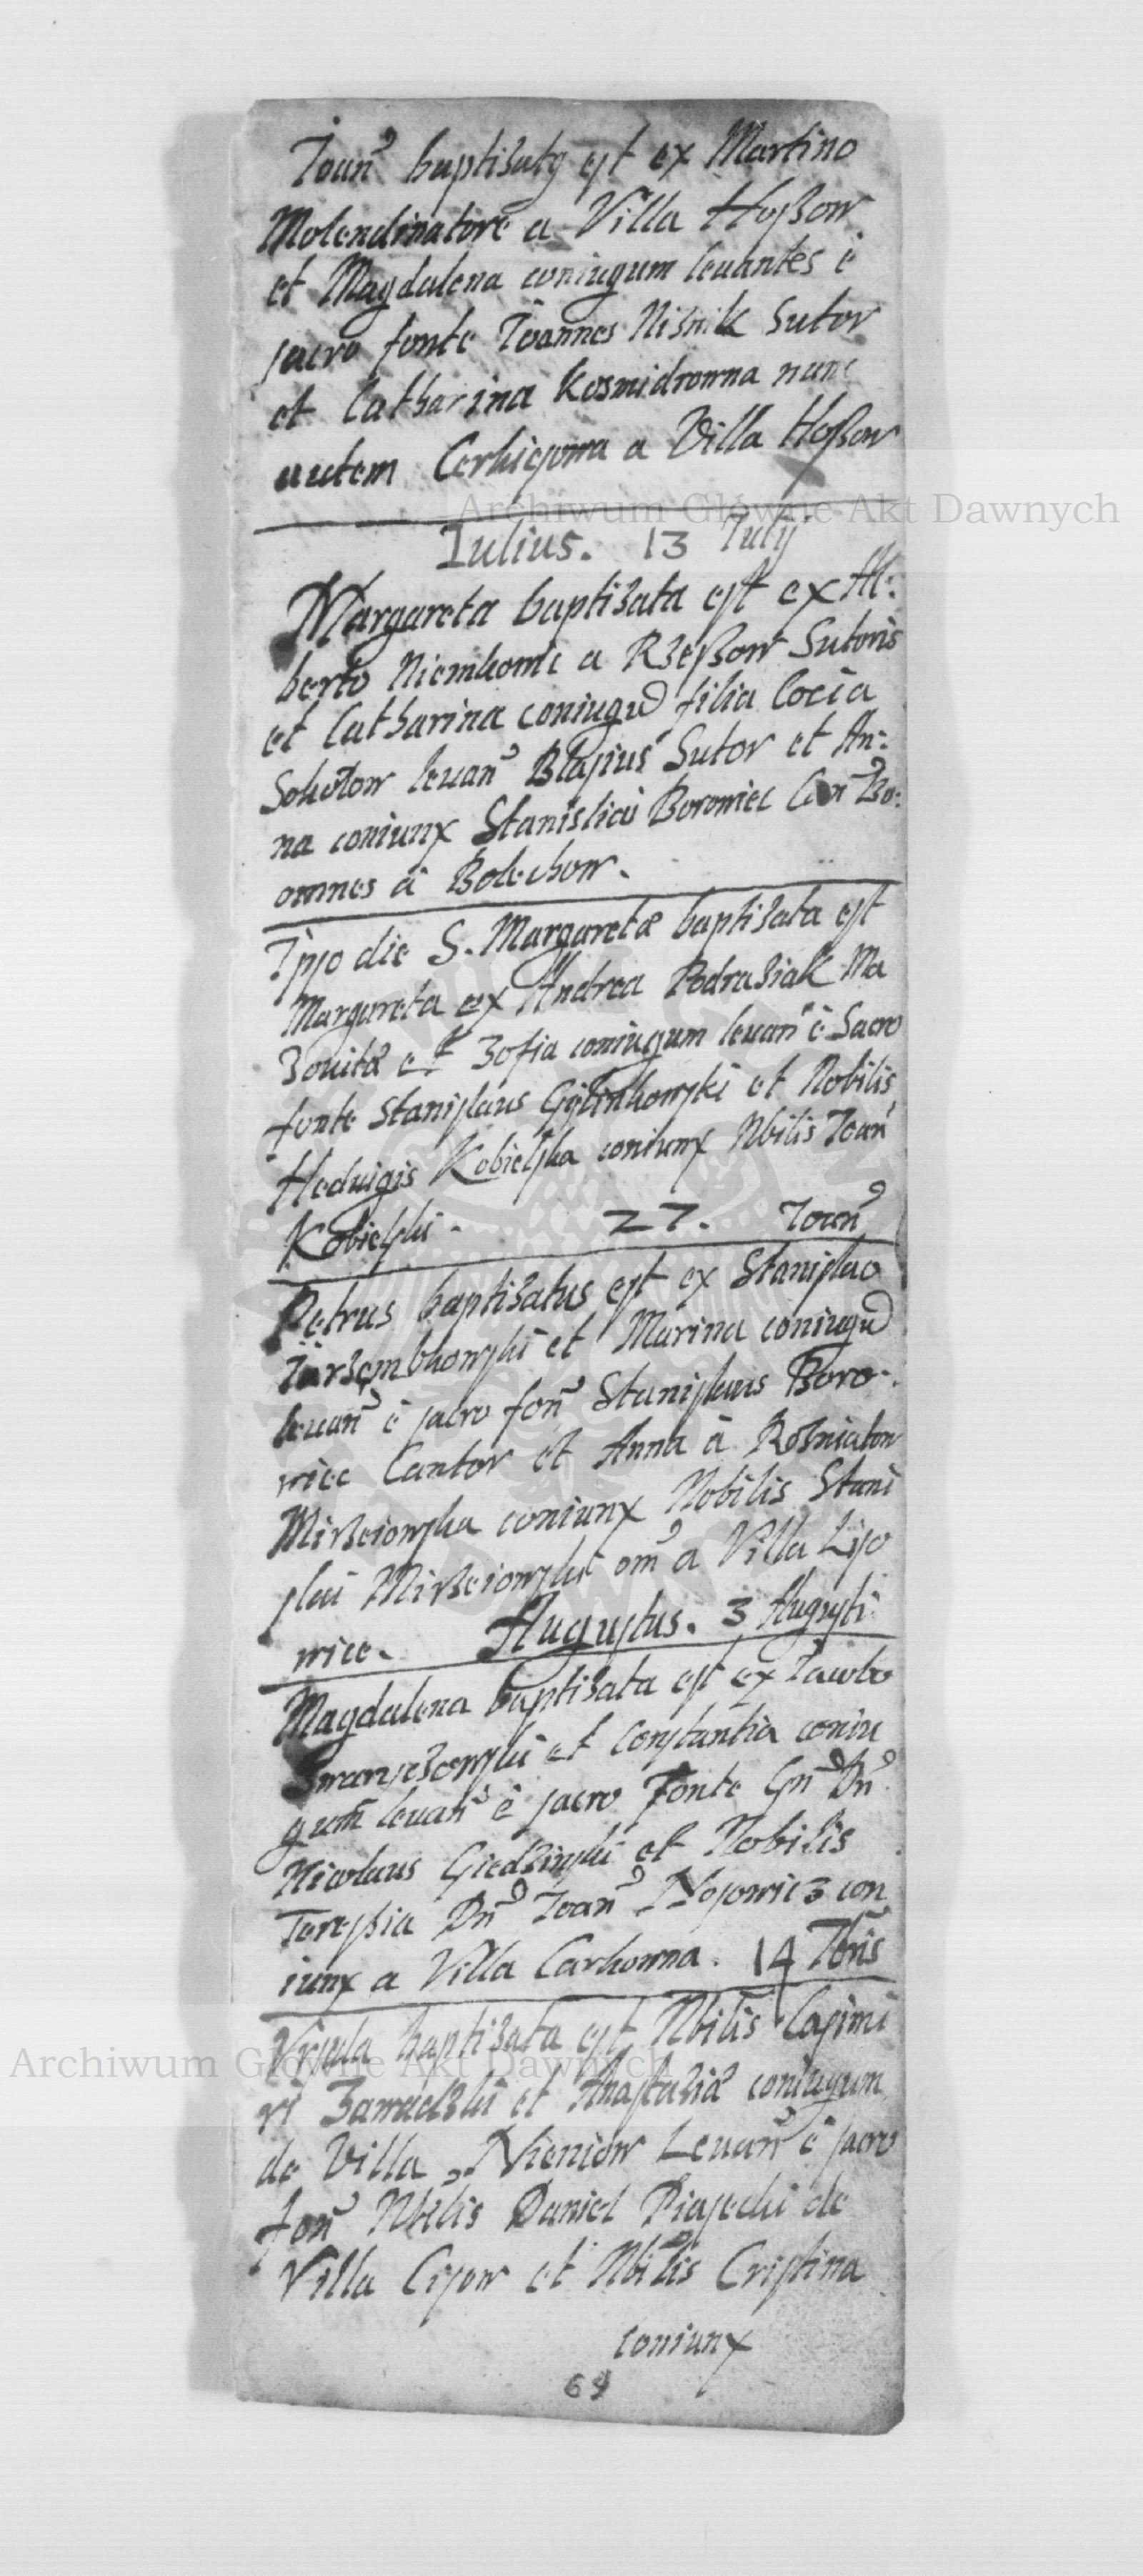 Ioan̄ baptisatꝯ est ex Martino
Molendinatore a Villa Hoszow
et Magdalena coniugum leuantes è
sacro fonte Ioannes Nisnik Sutor
et Catharina Kosmidrowna nunc
autem a Villa Hoszow
Archiwum Główne Akt Dawnych
Iulius. 13 Iulij
Margareta baptisata est ex Al:
berto a Rzeszow Sutoris
et Catharina coniugū filia
Sokołow leuan̄ Blasius Sutor et An:
na coniunx Stanislai Borowiec
omnes à Bolechow.
Ipso die S. Margaretæ baptisata est
Margareta ex Andrea Podrasiak Ma
zouitæ et Zofia coniugum leuan̄ è Sacro
fonte Stanislaus et Nobilis
Heduigis Kobielska coniunx Nbilis Ioan̄
Kobielski - 27. Ioan̄
Petrus baptisatus est ex Stanislao
Iarzembkowski et Marina coniugū
leuan̄ è sacro fon̄ Stanislaus Boro-
wiec Cantor et Anna à Rozniatow
Mirzeiowska coniunx Nobilis Stani
slai Mirzeiowski om̄ a Villa Liso
wice. Augustus. 3 Augusti
Magdalena baptisata est ex Iacobo
et Constantia coniu
gum leuan̄ è sacro Fonte Gn̄ Dn̄
Nicolaus Giedzinski et Nobilis
Teressia Dn̄ Ioan̄ Nosowicz con
iunx a Villa Carkowna. 14 7bris
Vrsula baptisata est Nbilis Casimi
Archiwum Główne Akt Dawnych
ri Zawadzki et Anastasiæ coniugum
de Villa Nieniow Leuan̄ è sacro
fon̄ Nbilis Daniel Piasecki de
Villa Cisow et Nbilis Cristina
coniunx
69